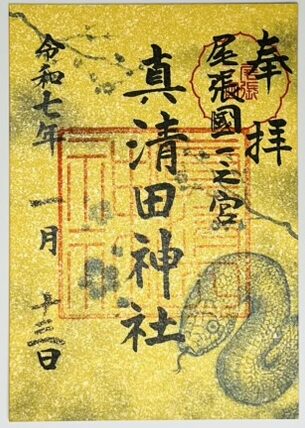 奉拝
尾張國一之宮
真清田神社
令和七年 一月 十三日